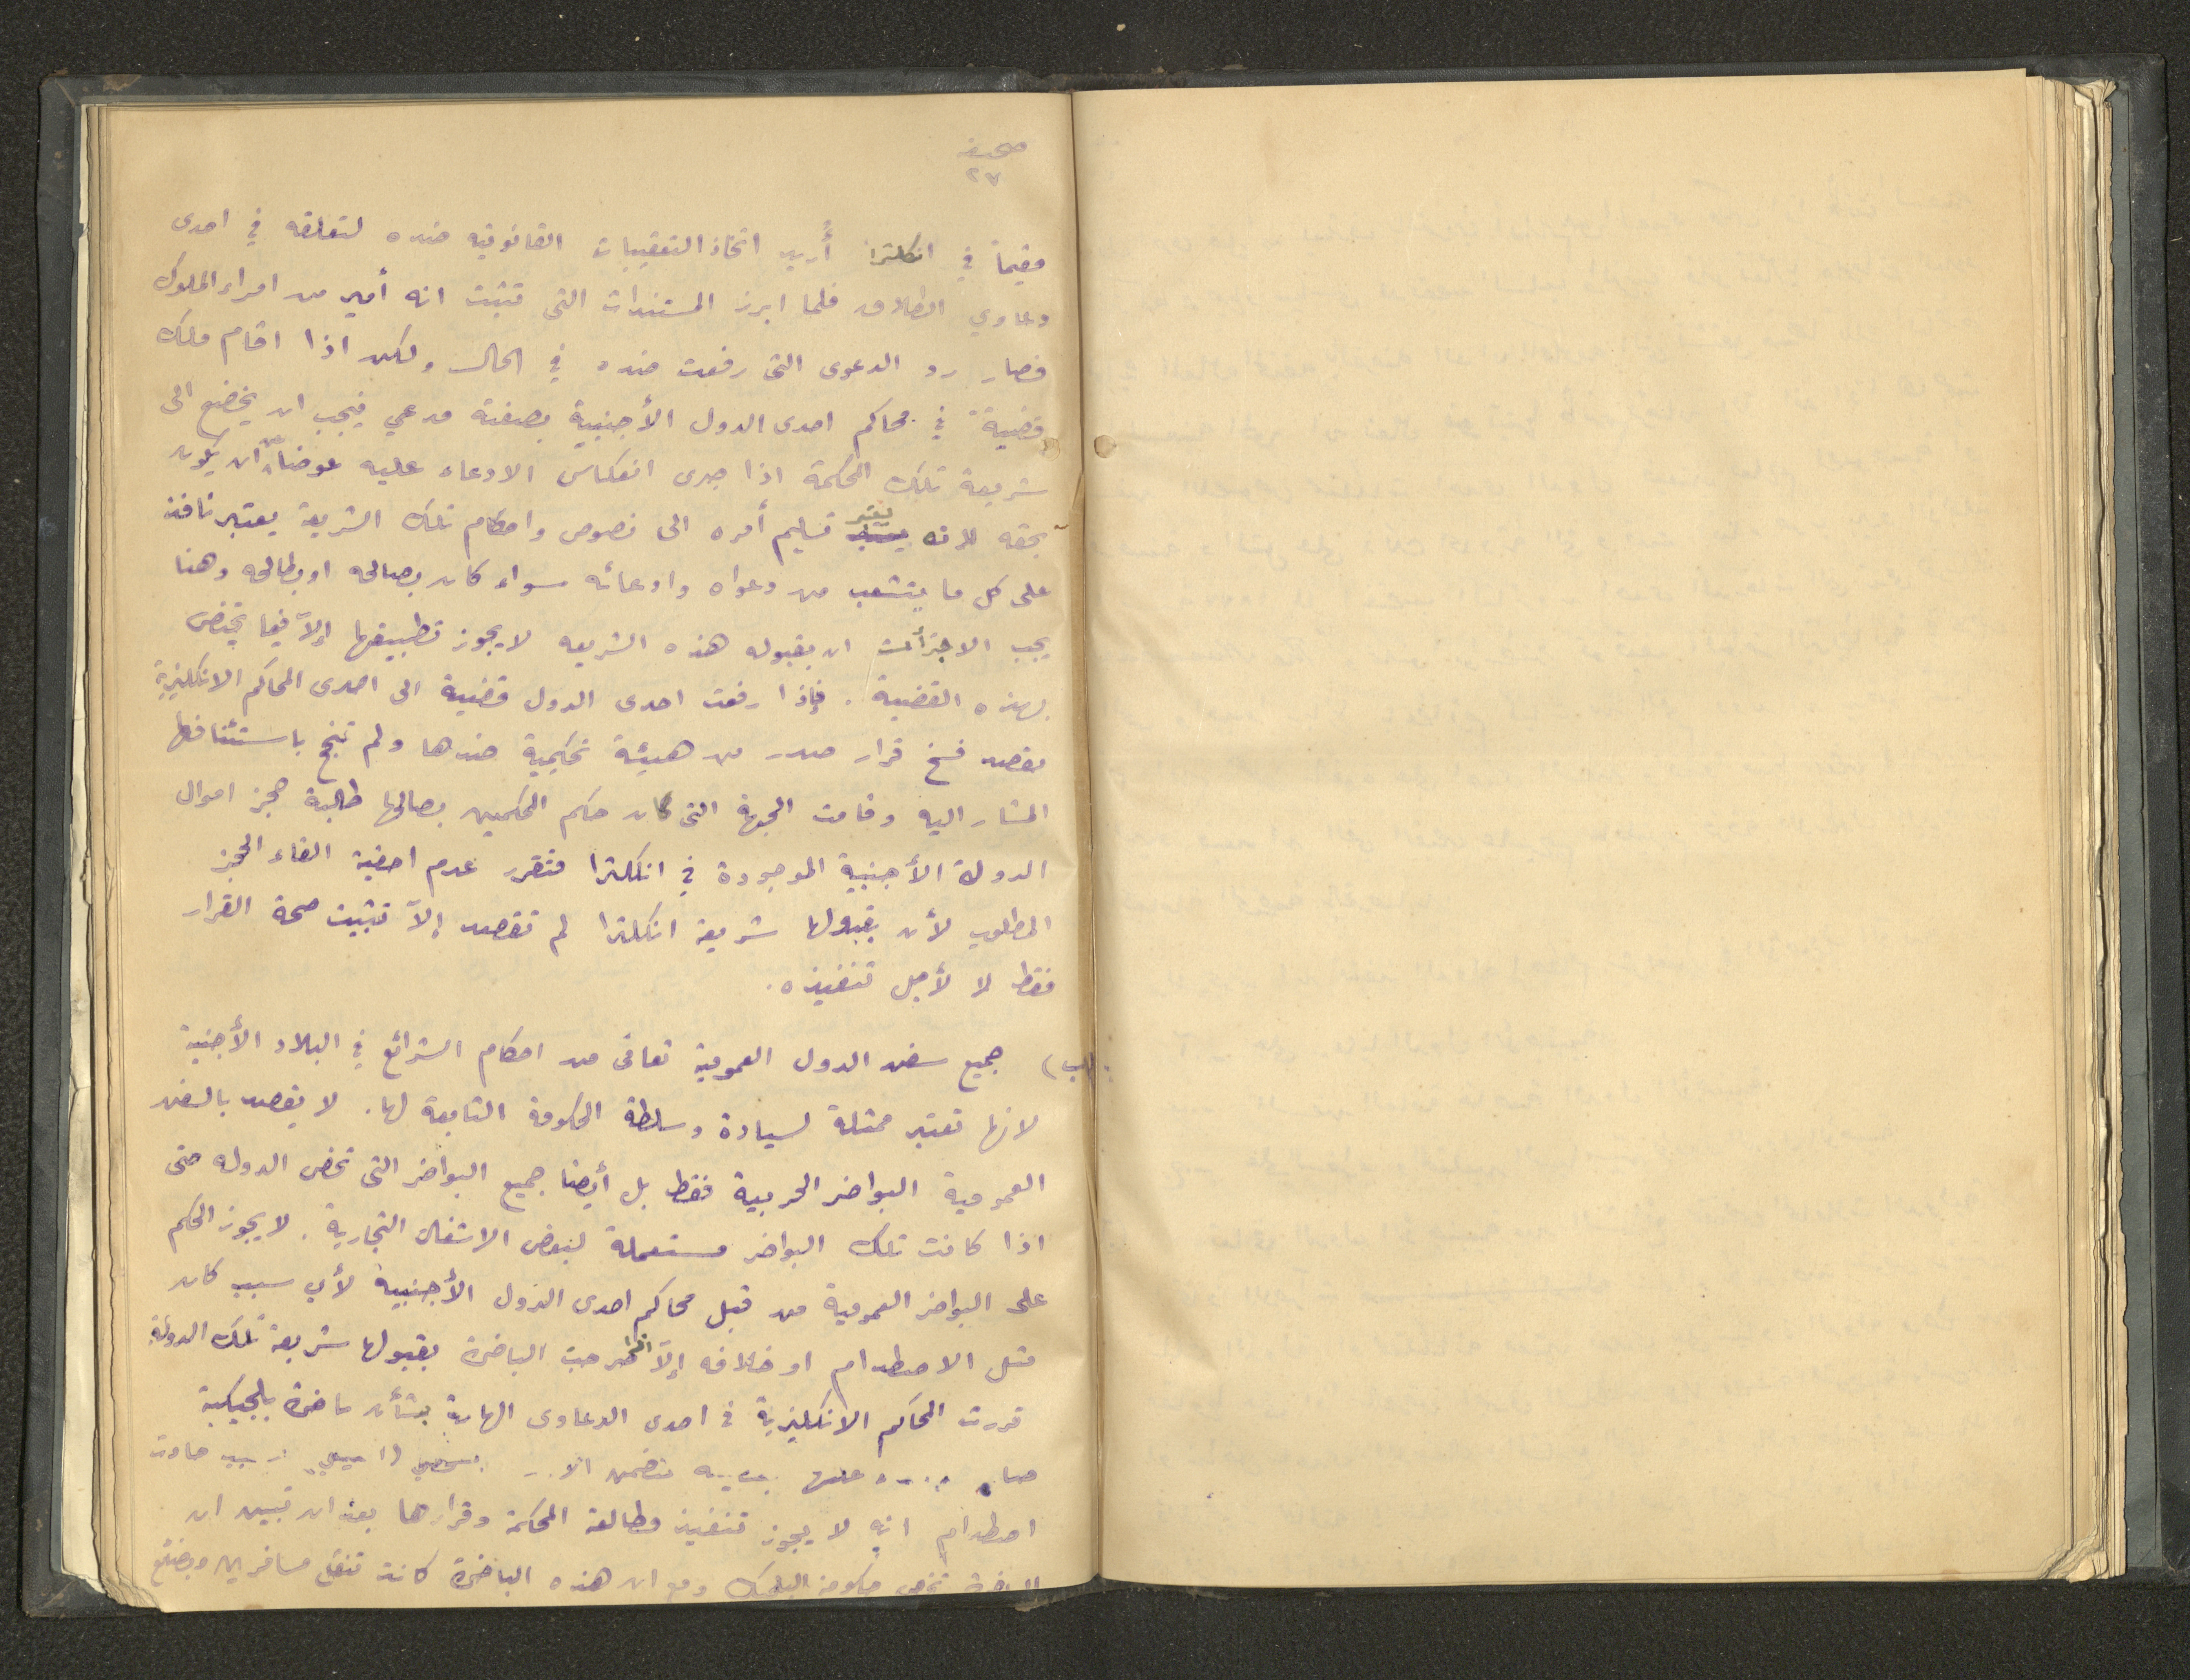 صحيفة
٢٧
مقيماً في انكلترا أُريد اتخاذ التعقيبات القانونيه ضده لتعلقه في احدى
دعاوي الطلاق فلما ابرز المستندات التى تثبت انه أمير من امراء الملوك
فصار رد الدعوى التى رفعت ضده في الحال ولكن اذا اقام ملك
قضية في محاكم احدى الدول الأجنبية بصفته مدعي فيجب ان يخضع الى
شريعة تلك المحكمة اذا جرى انعكاس الادعاء عليه عوضا عن ان يكون
بحقه لانه يعتبر تسليم أمره الى نصوص واحكام تلك الشريعة يعتبر نافذ
على كل ما يتشعب من دعواه وادعائه سواء كان بصالحه او بطالحه وهنا
يجب ان بقبوله هذه الشريعه لا يجوز تطبيقها إلاّ فيما يختص
بهذه القضية . فإذا رفعت احدى الدول قضية الى احدى المحاكم الانكليزية
بقصد فسخ قرار صدر من هيئة تحكيمية ضدها ولم تنجح باستئنافها
المشار اليه وقامت الجهة التى كان حكم المحكمين بصالحها طالبة حجز اموال
الدولة الأجنبية الموجودة في انكلترا فتقرر عدم احقية القاء الحجز
المطلوب لأن بقبولها شريعة انكلترا لم تقصد إلاّ تثبيت صحة القرار
فقط لا لأجل تنفيذه .
(ب) جميع سفن الدول العمومية تعافى من احكام الشرائع في البلاد الأجنبية
لانها تعتبر ممثلة لسيادة وسلطة الحكومة التابعة لها . لا يقصد بالسفن
العمومية البواخر الحربية فقط بل أيضا جميع البواخر التى تخص الدوله حتى
اذا كانت تلك البواخر مستعملة لبعض الاشغال التجارية . لا يجوز الحكم
على البواخر العمومية من قبل محاكم احدى الدول الأجنبية لأي سبب كان
مثل الاصطدام او خلافه إلاّ اذا صرحت الباخرة بقبولها شريعة تلك الدولة
قررت المحاكم الانكليزية في احدى الدعاوى الهامة بشأن باخرة بلجيكية
عليها بسبب حادث
اصطدام انه لا يجوز تنفيذ مطالعة المحكمة وقرارها بعد ان تبين ان
الباخرة تخص حكومة البلجيك ومع ان هذه الباخرة كانت تنقل مسافرين وبضائع